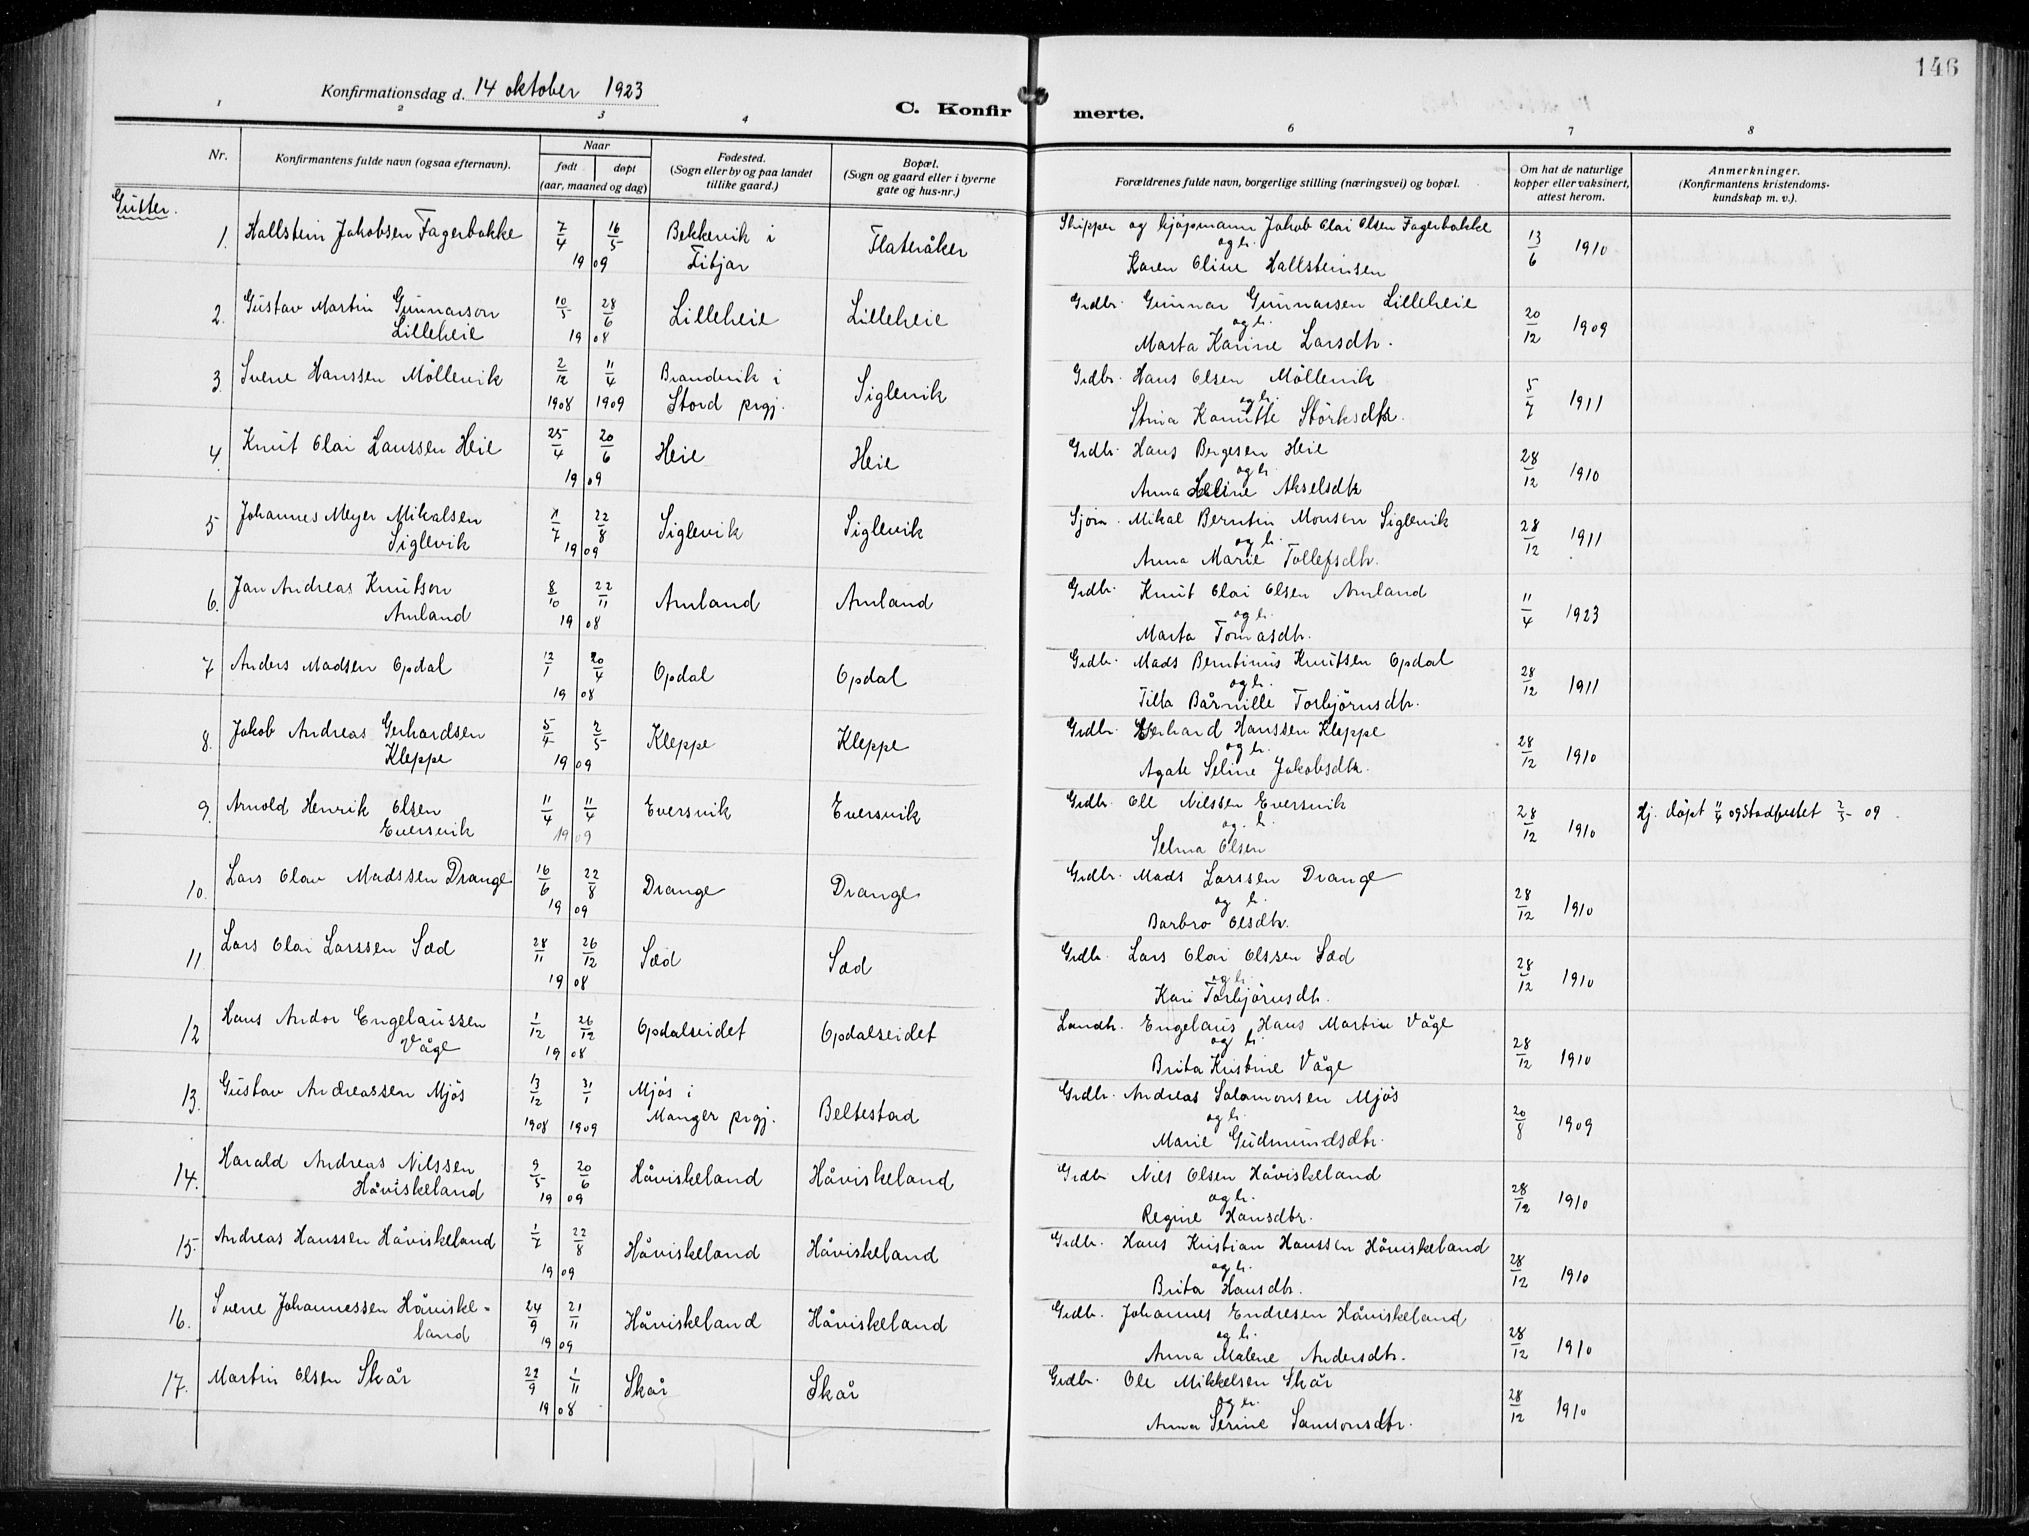 146
Konfirmationsdag d. 14 oktober 1923
C. Konfirmerte.
1 2 3 4 6 7 8
Nr.
Konfirmantens fulde navn (ogsaa efternavn).
Naar
født døpt
(aar, maaned og dag)
Fødested.
(Sogn eller by og paa landet
tillike gaard.)
Bopæl.
(Sogn og gaard eller i byerne
gate og hus-nr.)
Forældrenes fulde navn, borgerlige stilling (næringsvei) og bopæl.
Om hat de naturlige
kopper eller vaksinert,
attest herom.
Anmerkninger.
(Konfirmantens kristendoms-
kundskap m. v.).
Gutter.
1. Hallstein Jakobsen Fagerbakke 7/4 16/5 1909 Bekkervik i Fitjar Flateråker Skipper og kjøpmann Jakob Olai Olsen Fagerbakke og h. Karen Oline Hallsteinsen 13/6 1910
2. Gustav Martin Gunnarson Lilleheie 10/5 28/6 1908 Lilleheie Lilleheie Grdbr. Gunnar Gunnarsen Lilleheie og h. Marta Karine Larsdtr. 20/12 1909
3. Sverre Hanssen Möllevik 2/12 1908 11/4 1909 Brandvik i Stord prgj. Siglevik Grdbr. Hans Olsen Möllevik og h. Stina Kanutte Störksdtr. 5/7 1911
4. Knut Olai Hanssen Heie 25/4 20/6 1909 Heie Heie Grdbr. Hans Bergesen Heie og h. Anna Seline Akselsdtr 28/12 1910
5 Johannes Meyer Mikalsen Siglevik 22/8 1909 Siglevik Siglevik Sjöm. Mikal Berntin Monsen Siglevik og h. Anna Marie Tollefsdtr. 28/12 1911
6. Jan Andreas Knutson Amland 8/10 22/11 1908 Amland Amland Grdbr. Knut Olai Olsen Amland og h. Marta Tomasdtr. 11/4 1923
7 Anders Madsen Opdal 12/1 20/4 1908 Opdal Opdal Grdbr. Mads Berntinus Knutsen Opdal og h. Tilla Bårnille Torbjörnsdtr. 28/12 1911
8. Jakob Andreas Gerhardsen Kleppe 5/4 2/5 1909 Kleppe Kleppe Grdbr. Gerhard Hanssen Kleppe og h. Agate Seline Jakobsdtr. 28/12 1910
9. Arnold Henrik Olsen Eversvik 11/4 11/4 1909 Eversvik Eversvik Grdbr. Ole Nilssen Eversvik og h. Selma Olsen 28/12 1910 Hj. döpt 11/4 09 Stadfestet 2/5 09.
10. Lars Olav Madssen Drange 16/6 22/8 1909 Drange Drange Grdbr. Mads Larssen Drange og h. Barbro Olsdtr. 28/12 1910
11. Lars Olai Larssen Sæd 28/11 26/12 1908 Sæd Sæd Grdbr. Lars Olai Olssen Sæd og h. Kari Torbjörnsdtr. 28/12 1910
12 Hans Andor Engelaussen Våge 1/12 26/12 1908 Opdalseidet Opdalseidet Landh. Engelaus Hans Martin Våge og h. Brita Kristine Våge 28/12 1910
13. Gustav Andreassen Mjös 13/12 1908 31/1 1909 Mjös i Manger prgj. Beltestad Grdbr. Andreas Salamonsen Mjös og h. Marie Gudmundsdtr. 20/8 1909
14. Harald Andreas Nilssen Håviskeland 9/5 20/6 1909 Håviskeland Håviskeland Grdbr Nils Olsen Håviskeland og h. Regine Hansdtr. 28/12 1910
15. Andreas Hanssen Håviskeland 1/7 22/8 1909 Håviskeland Håviskeland Grdbr. Hans Kristian Hanssen Håviskeland og h. Brita Hansdtr. 28/12 1910
16. Sverre Johannessen Håviskeland 24/9 21/11 1909 Håviskeland Håviskeland Grdbr. Johannes Endresen Håviskeland og h. Anna Malene Andersdtr. 28/12 1910
17. Martin Olsen Skår 22/9 1/11 1908 Skår Skår Grdbr. Ole Mikkelsen Skår og h. Anna Serine Samsonsdtr. 28/12 1910